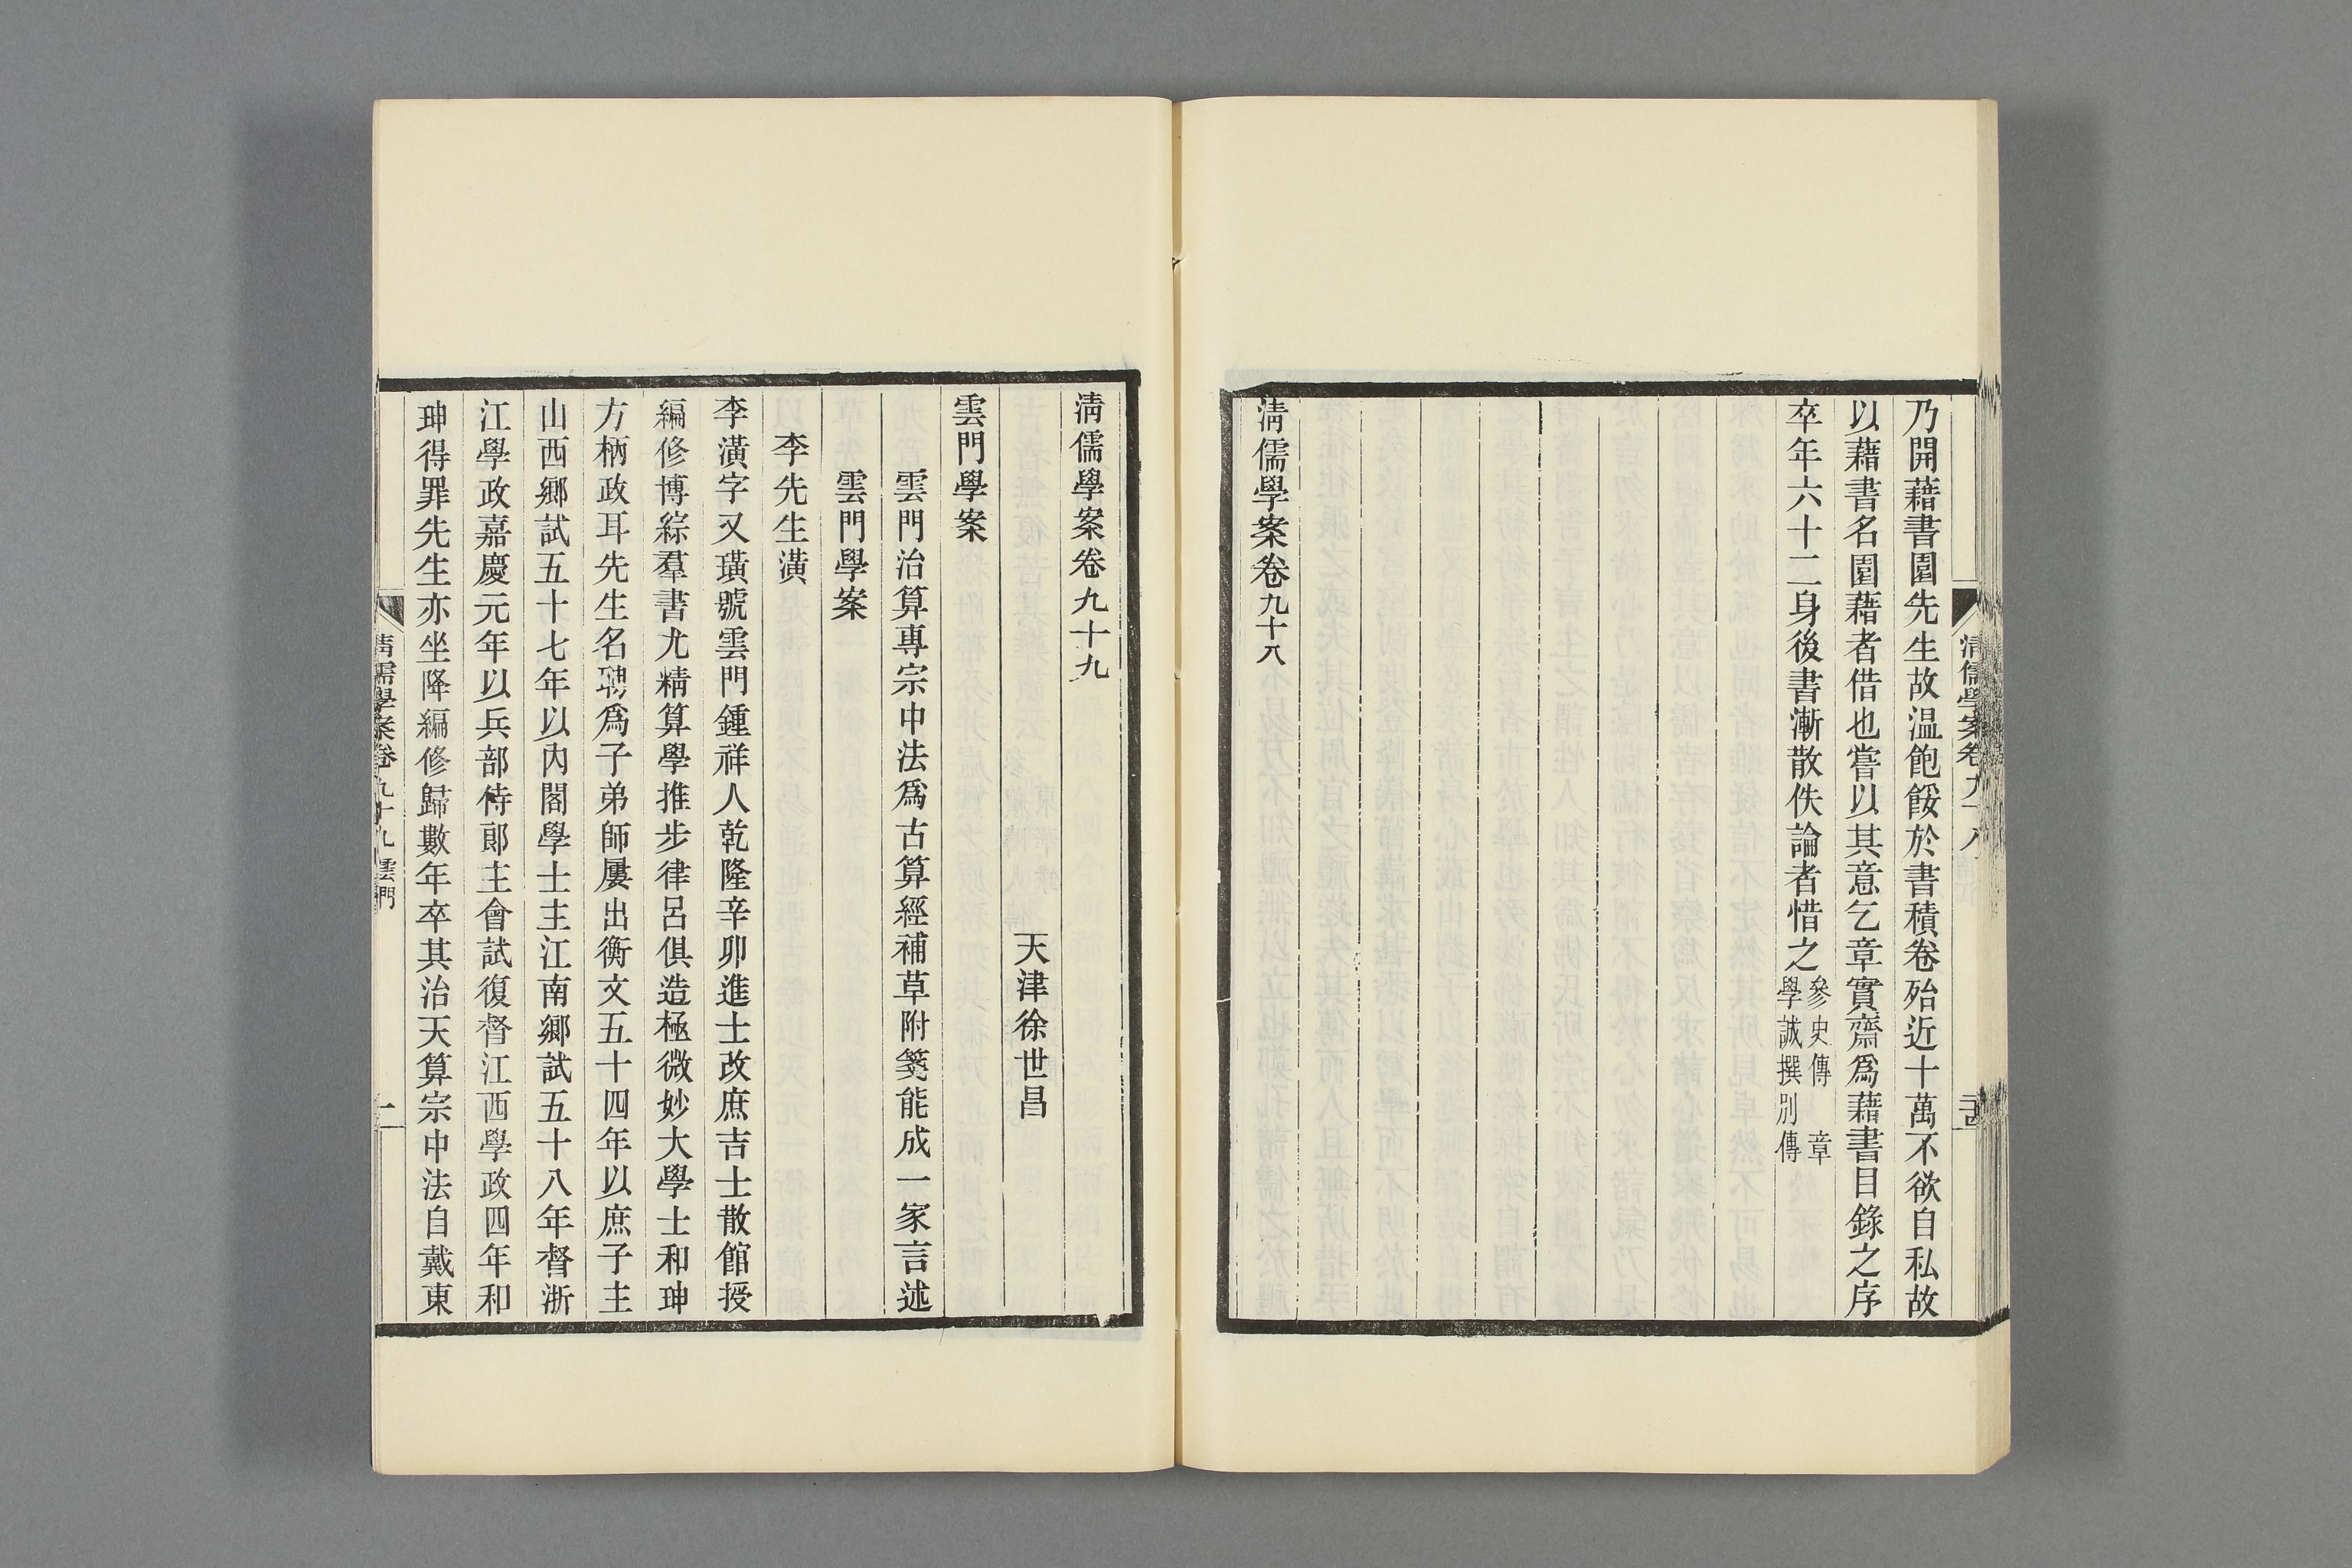 清儒學案卷九十八
乃開藉書園先生故温飽餒於書積卷殆近十萬不欲自私故
以藉書名園藉者借也嘗以其意乞章實齋爲藉書目錄之序
卒年六十二身後書漸散佚論者惜之
參史傳 章
學誠撰別傳
清儒學案卷九十八
清儒學案卷九十九
天津徐世昌
雲門學案
雲門治算專宗中法爲古算經補草附箋能成一家言述
雲門學案
李先生潢
李潢字又璜號雲門鍾祥人乾隆辛卯進士改庶吉士散館授
編修博綜羣書尤精算學推步律呂俱造極微妙大學士和珅
方柄政耳先生名聘爲子弟師屢出衡文五十四年以庶子主
山西鄉試五十七年以內閣學士主江南鄉試五十八年督浙
江學政嘉慶元年以兵部侍郎主會試復督江西學政四年和
珅得罪先生亦坐降編修歸數年卒其治天算宗中法自戴東
清儒學案卷九十九 雲門